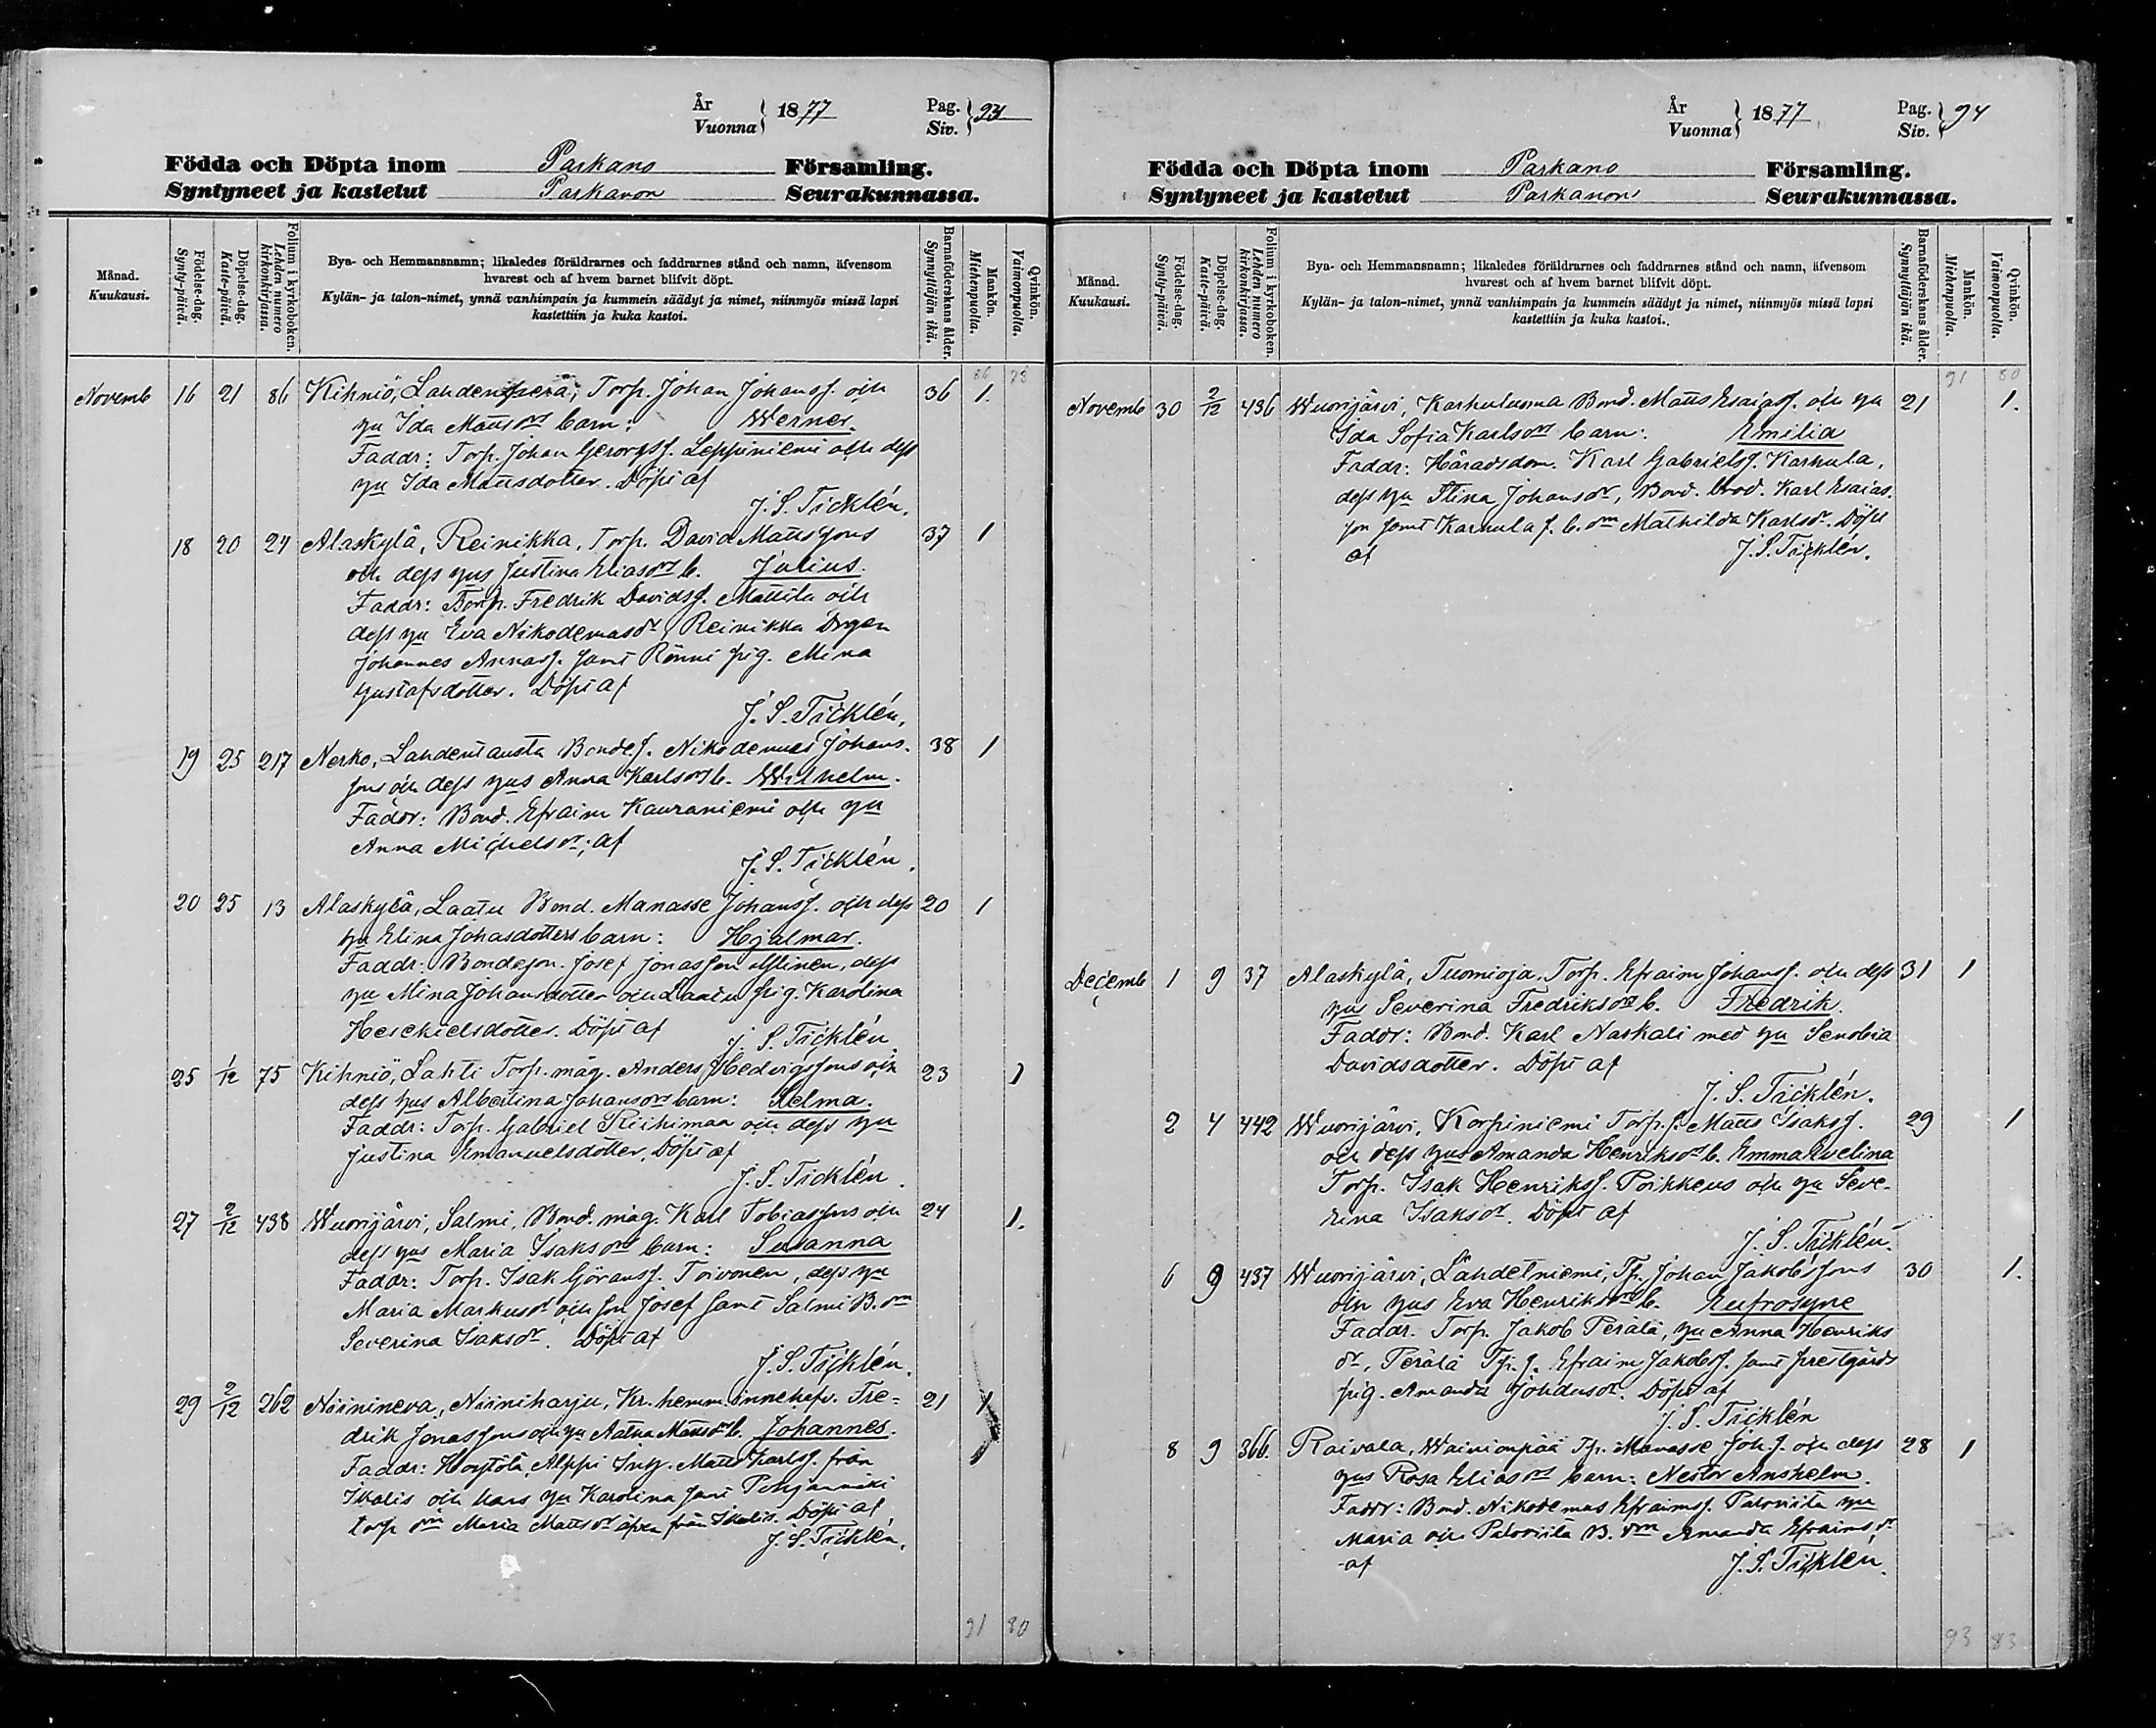 År
Vuonna } 1877 Pag.
Siv. } 93
Födda och Döpta inom Parkano Församling.
Syntyneet ja kastetut Parkanon Seurakunnassa.
Månad.
Kuukausi.
Födelse-dag.
Synty-päivä.
Döpelse-dag.
Kaste-päivä.
Folium i kyrkoboken.
Lehden numero
kirkonkirjassa.
Bya- och Hemmansnamn; likaledes föräldrarnes och faddrarnes stånd och namn, äfvensom
hvarest och af hvem barnet blifvit döpt.
Kylän- ja talon-nimet, ynnä vanhimpain ja kummein säädyt ja nimet, niinmyös missä lapsi
kastettiin ja kuka kastoi.
Barnaföderskans ålder.
Synnyttäjän ikä.
Mankön.
Miehenpuolia.
Qvinkön.
Vaimonpuolia.
86 78
Novemb 16 21 86 Kihniö, Lahdenperä, Torp. Johan Johanss. och 36 1.
hu Ida Mattsdrs barn: Werner.
Faddr: Torp. Johan Georgss. Leppiniemi och dess
hu Ida Mattsdotter. Döpt af
J. S. Ticklén.
18 20 24 Alaskylä, Reinikka, Torp. David Mattssons 37 1
och dess hus Justina Eliasdrs b. Julius.
Faddr: Torp. Fredrik Davidss. Mattila och
dess hu Eva Nikodemusdr, Reinikka Drgen
Johannes Annass. samt Rönni pig. Mina
Gustafsdotter. Döpt af
J. S. Ticklén.
19 25 217 Nerko, Lahdentausta Bondes. Nikodemus Johans- 38 1
sons och dess hus Anna Karlsdrs b. Wilhelm.
Faddr: Bond. Efraim Kauraniemi och hu
Anna Michelsdr; af
J. S. Ticklén.
20 25 13 Alaskylä, Laatu Bond. Manasse Johanss. och dess 20 1
hu Elina Johansdotters barn: Hjalmar.
Faddr: Bondeson. Josef Jonasson, dess
hu Mina Johansdotter och Laatu pig. Karolina
Heseckielsdotter. Döpt af
J. S. Ticklén
25 1/12 75 Kihniö, Lahti Torp. måg. Anders Hedvigssons och 23 1
dess hus Albertina Johansdrs barn: Selma.
Faddr: Torp. Gabriel Riihimaa och dess hu
Justina Emanuelsdotter, Döpt af
J. S. Ticklén.
27 2/12 438 Wuorijärvi, Salmi, Bond. måg. Karl Tobiassons och 24 1.
dess hus Maria Isaksdrs barn: Susanna
Faddr: Torp. Isak Göranss. Toivonen, dess hu
Maria Markusdr och son Josef samt Salmi B. drn
Severina Isaksdr. Döpt af
J. S. Ticklén.
29 2/12 262 Niinineva, Niiniharju, Kr. hemm. innehafv. Fre- 21 1
drik Jonassons och hu Mattsdrs b. Johannes. 1
Faddr: Alppi Inh. Matts Karlss. från
Ikalis och hans hu Karolina samt Pohjanmäki
torp drn Maria Mattsdr äfven från Ikalis. Döpt af
J. S. Ticklén.
91 80
År
Vuonna } 1877 Pag.
Siv. } 94
Födda och Döpta inom Parkano Församling.
Syntyneet ja kastetut Parkanon Seurakunnassa.
Månad.
Kuukausi.
Födelse-dag.
Synty-päivä.
Döpelse-dag.
Kaste-päivä.
Folium i kyrkoboken.
Lehden numero
kirkonkirjassa.
Bya- och Hemmansnamn; likaledes föräldrarnes och faddrarnes stånd och namn, äfvensom
hvarest och af hvem barnet blifvit döpt.
Kylän- ja talon-nimet, ynnä vanhimpain ja kummein säädyt ja nimet, niinmyös missä lapsi
kastettiin ja kuka kastoi.
Barnaföderskans ålder.
Synnyttäjän ikä.
Mankön.
Miehenpuolia.
Qvinkön.
Vaimonpuolia.
91 80
Novemb 30 2/12 436 Wuorijärvi, Karhuluoma Bond. Matts Esaiass. och hu 21 1.
Ida Sofia Karlsdrs barn: Emilia
Faddr: Häradsdom. Karl Gabrielss. Karhula,
dess hu Stina Johansdr, Bond. brod. Karl Esaias-
son samt Karhula s. b. drn Mathilda Karlsdr. Döpt
af J. S. Ticklén.
Decemb 1 9 37 Alaskylä, Tuomioja, Torp. Efraim Johanss. och dess 31 1
hus Severina Fredriksdrs b. Fredrik.
Faddr: Bond. Karl Naskali med hu Senobia
Davidsdotter. Döpt af
J. S. Ticklén.
2 4 442 Wuorijärvi, Korpiniemi Torp. s. Matts Isakss. 29 1
och dess hus Amanda Henriksdrs b. Emma Evelina
Torp. Isak Henrikss. Poikkeus och hu Seve-
rina Isaksdr. Döpt af
J. S. Ticklén.
6 9 437 Wuorijärvi, Lähdetniemi, Tp. Johan Jakobssons 30 1.
och hus Eva Henriksdrs b. Eufrosyne
Faddr. Torp. Jakob Perälä, hu Anna Henriks
dr, Perälä Tp. s. Efraim Jakobss. samt prestgårds
pig. Amanda Johansdr. Döpt af
J. S. Ticklén
8 9 366. Raivala, Wainionpää Tp. Manasse Joh. s. och dess 28 1
hus Rosa Eliasdrs barn: Nestor Anshelm.
Faddr: Bond. Nikodemus Efraimss. Paloviita hu
Maria och Paloviita B. drn Amanda Efraimsdr
af J. S. Ticklén.
93 83